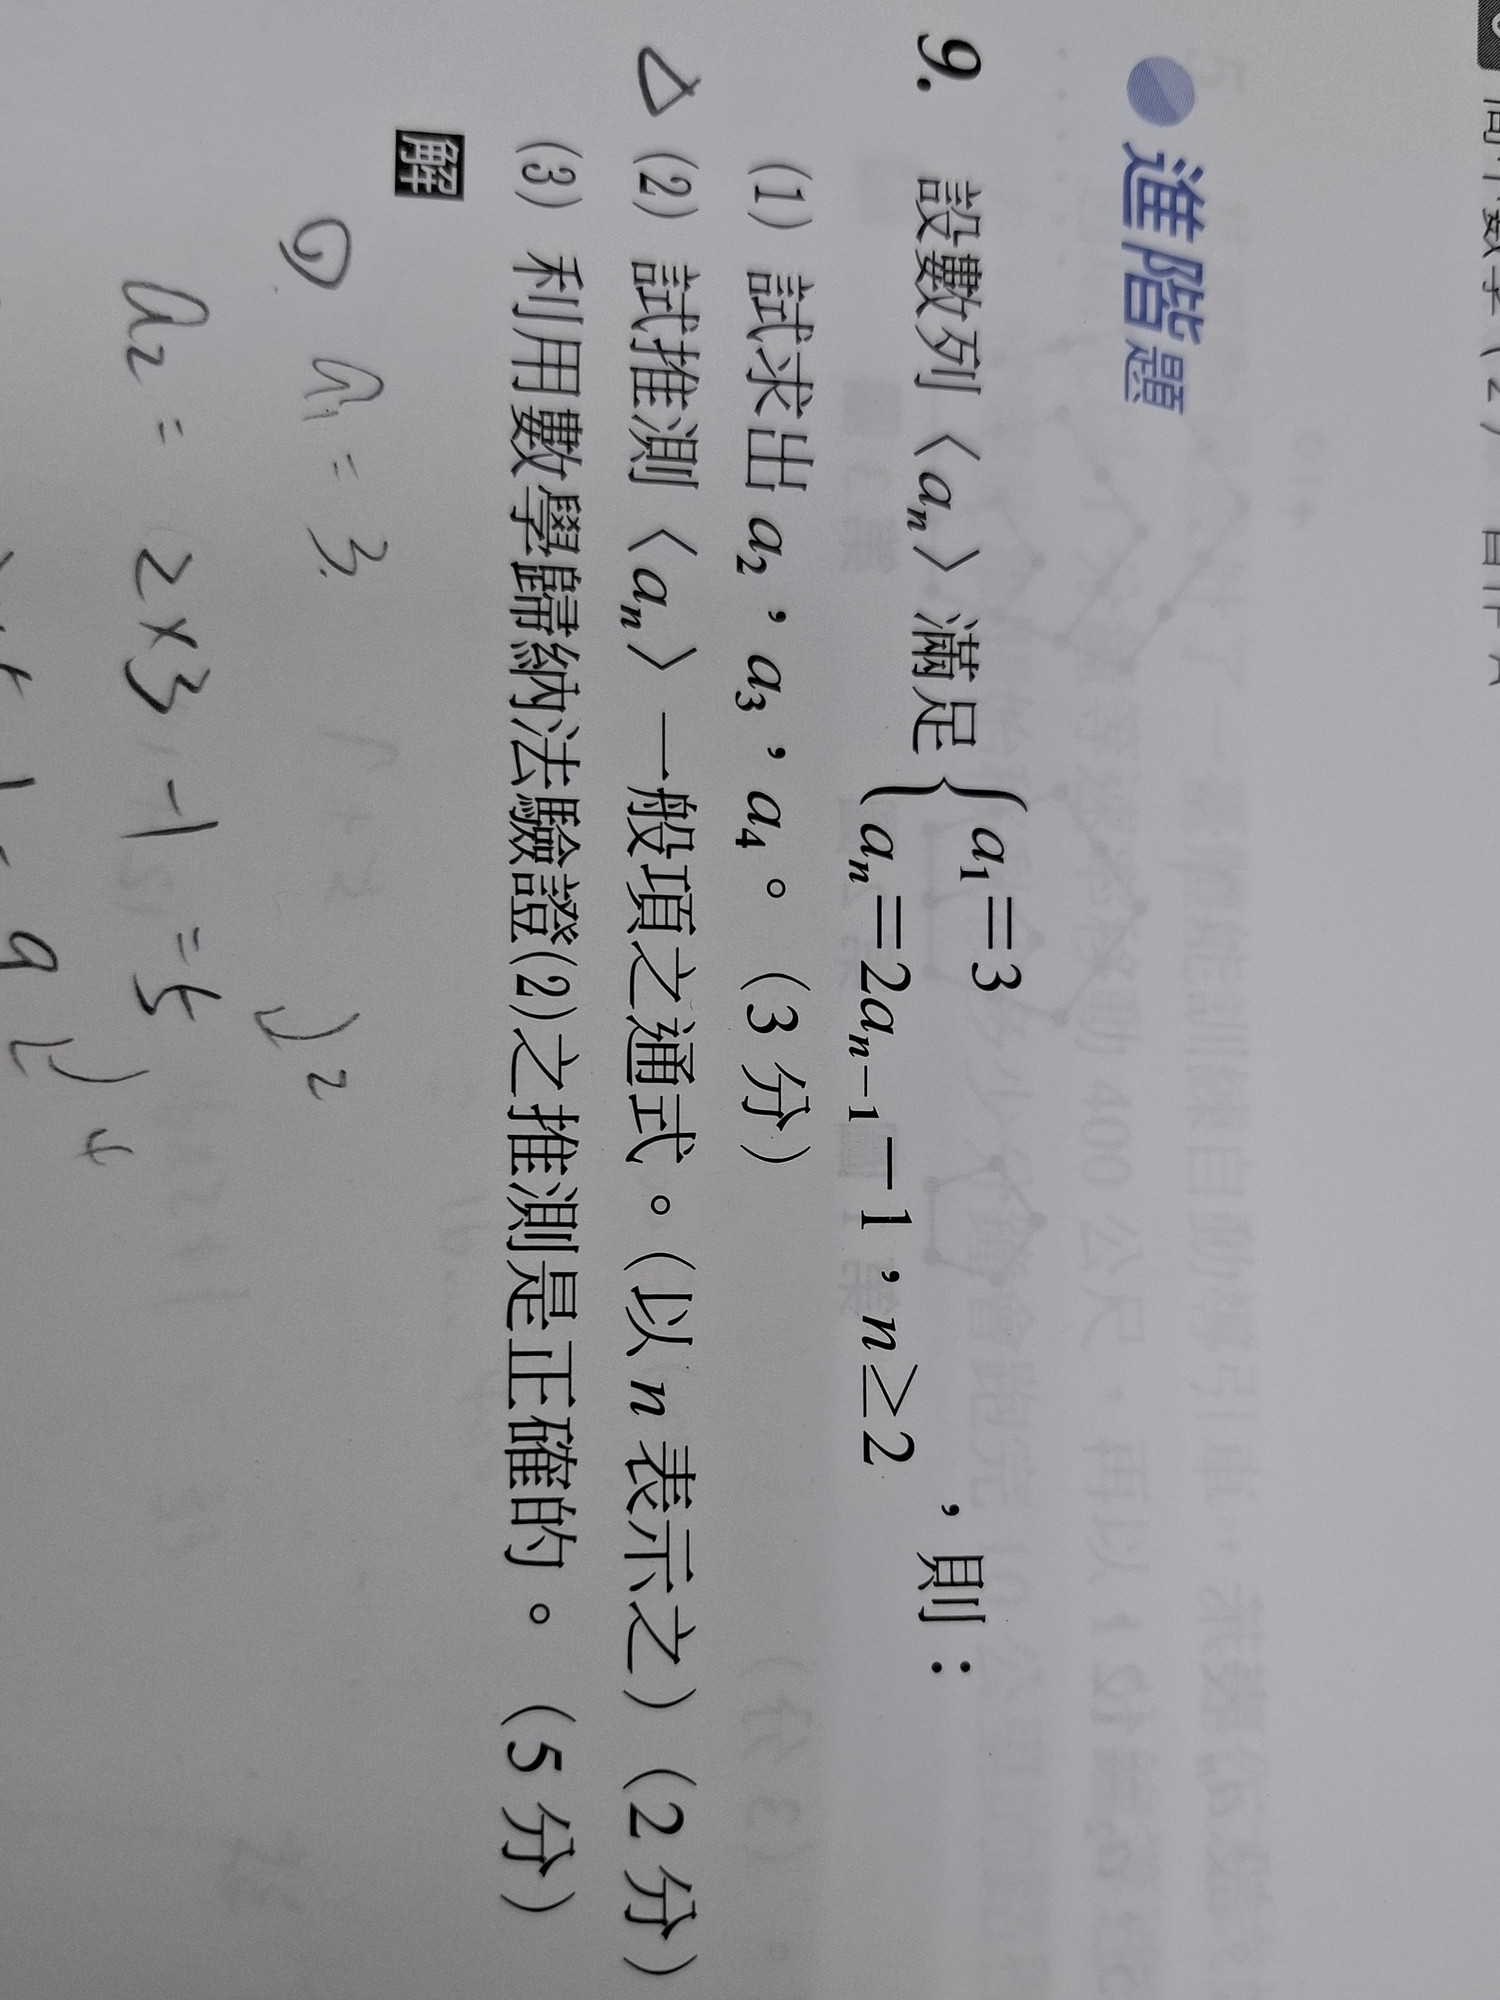 進階題
9. 設數列〈aₙ〉滿足{a₁=3
aₙ=2aₙ₋₁−1，n≥2，則：
(1) 試求出a₂，a₃，a₄。（3分）
(2) 試推測〈aₙ〉一般項之通式。（以n表示之）（2分）
(3) 利用數學歸納法驗證(2)之推測是正確的。（5分）
解
a₁=3
)2
a₂= 2×3-1=5
)4